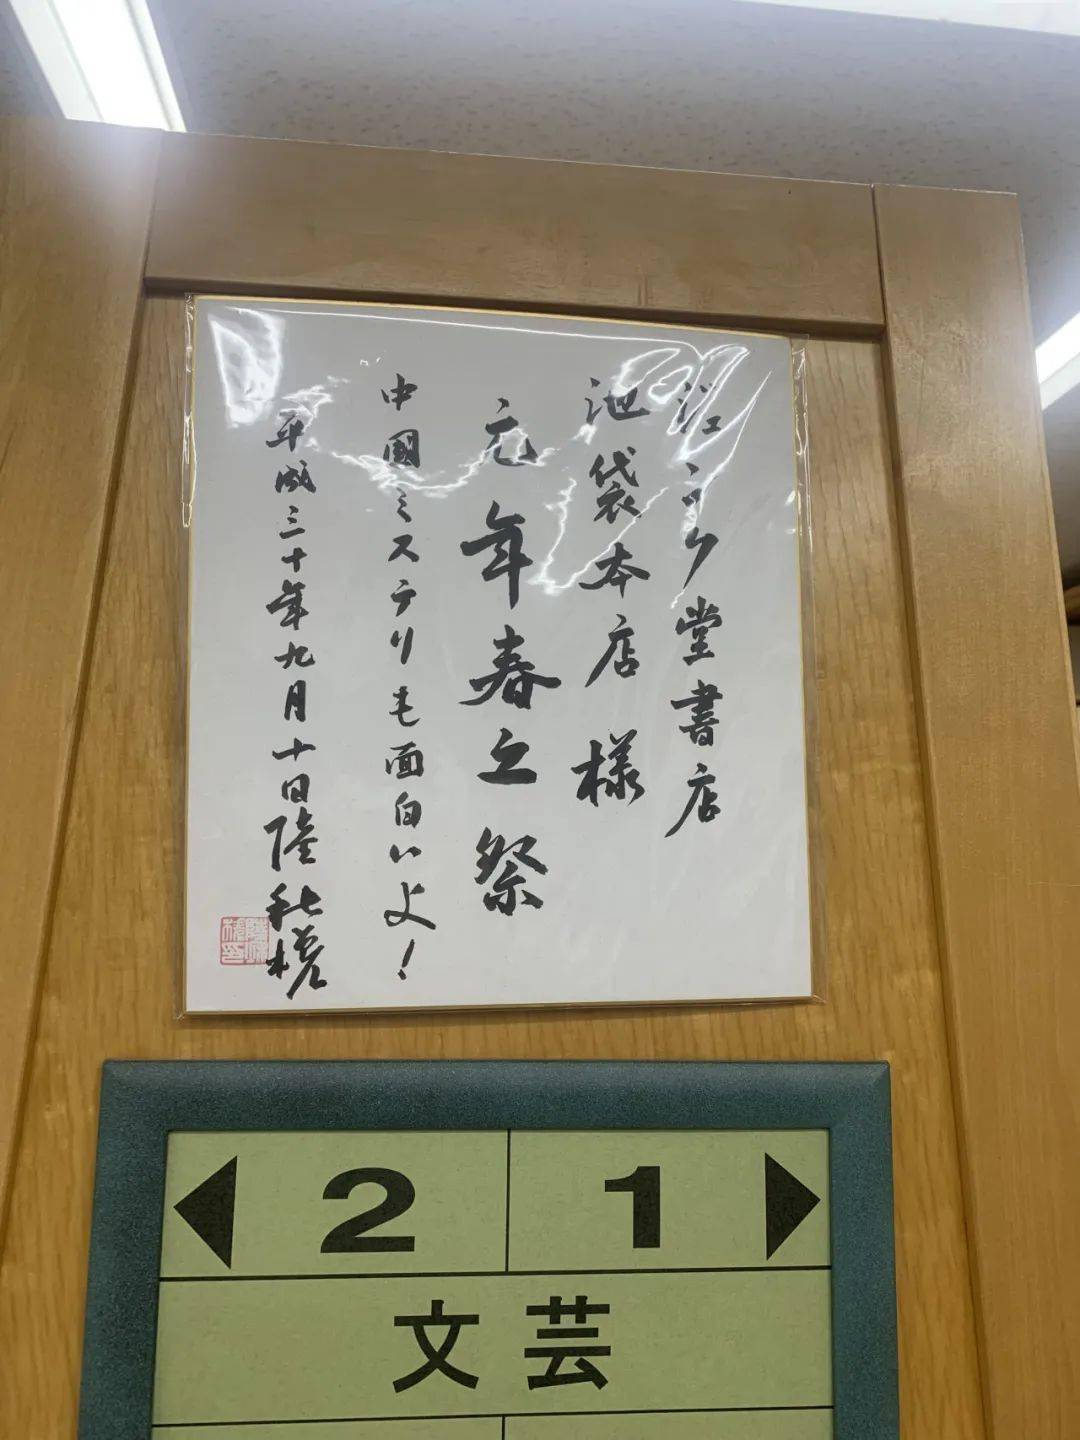 ジュンク堂書店
池袋本店 様
元年春之祭
中國ミステリも面白いよ！
平成三十年九月十日 陸秋槎
2 1
文芸